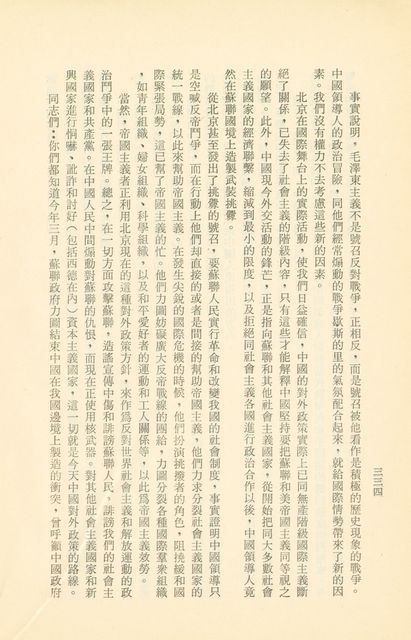 事實說明，毛澤東主義不是號召反對戰爭，正相反，而是號召被他看作是積極的歷史現象的戰爭。
中國領導人的政治冒險，同他們經常煽動的戰爭歇斯的里的氣氛配合起來，就給國際情勢帶來了新的因
素。我們沒有權力不去考慮這些新的因素。
北京在國際舞台上的實際活動，使我們日益確信，中國的對外政策實際上已同無產階級國際主義斷
絕了關係，已失去了社會主義的階級內容，只有這些才能解釋中國堅持要把蘇聯和美帝國主義同等視之
的願望。此外，中國現今外交活動的鋒芒，正是指向蘇聯和其他社會主義國家，從開始把同大多數社會
主義國家的經濟聯繫，縮減到最小的限度，以及拒絕同社會主義各國進行政治合作以後，中國領導人竟
然在蘇聯國境上造製武裝挑釁。
從北京甚至發出了挑釁的號召，要蘇聯人民實行革命和改變我國的社會制度，事實證明中國領導只
是空喊反帝鬥爭，而在行動上他們却直接的或者是間接的幫助帝國主義，他們力求分裂社會主義國家的
統一戰線，以此來幫助帝國主義。在發生尖銳的國際危機的時候，他們扮演挑撥者的角色，阻撓緩和國
際緊張局勢，這已幫了帝國主義的忙。他們力圖妨礙廣大反帝戰線的團結，力圖分裂各種國際羣衆組織
，如青年組織、婦女組織、科學組織，以及和平愛好者的運動和工人關係等，以此爲帝國主義效勞。
當然，帝國主義者正利用北京現在的這種對外政策方針，來作爲反對世界社會主義和解放運動的政
治鬥爭中的一張王牌。總之，在一切方面攻擊蘇聯，造謠宣傳中傷和誹謗蘇聯人民，誹謗我們的社會主
義國家和共產黨。在中國人民中間煽動對蘇聯的仇恨，而現在正使用核武器。對其他社會主義國家和新
興國家進行恫嚇、訛詐和討好（包括西德在內）資本主義國家，這一切就是今天中國對外政策的路線。
同志們：你們都知道今年三月，蘇聯政府力圖結束中國在我國邊境上製造的衝突，曾呼籲中國政府
三三四